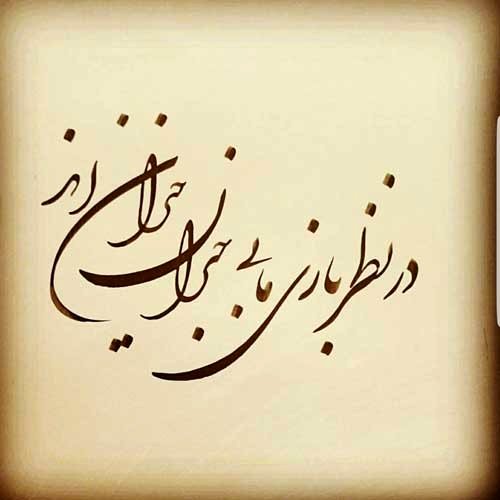 در نظربازی ما بی‌خبران حیرانند